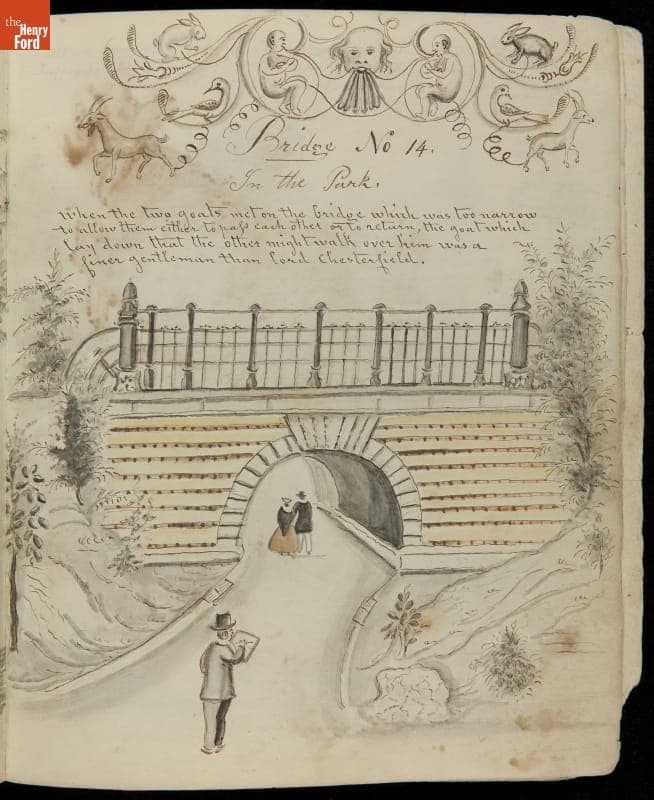 the
Henry
Ford
Bridge No 14.
In the Park.
When the two goats met on the bridge which was too narrow
to allow them either to pass each other or to return, the goat which
lay down that the other might walk over him was a
finer gentleman than Lord Chesterfield.